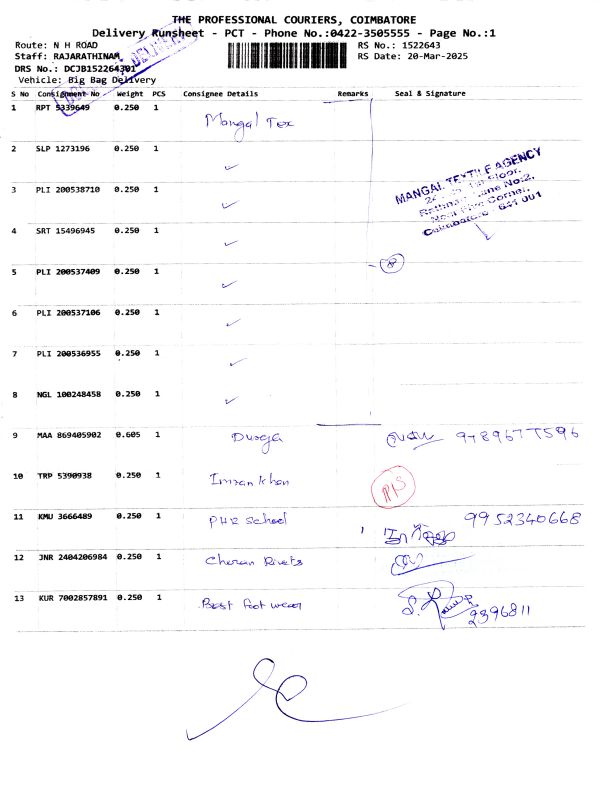 THE PROFESSIONAL COURIERS, COIMBATORE
Delivery Runsheet - PCT - Phone No.:0422-3505555 - Page No.:1
Route: N H ROAD RS No.: 1522643
Staff: RAJARATHINAM RS Date: 20-Mar-2025
DRS No.: DCJB152264301
Vehicle: Big Bag Delivery
S No Consignment No Weight PCS Consignee Details Remarks Seal & Signature
1 RPT 5339649 0.250 1 Mangal Tex
2 SLP 1273196 0.250 1 ✓
MANGAL TEXTILE AGENCY
3 PLI 200538710 0.250 1 ✓
4 SRT 15496945 0.250 1 ✓
Coimbatore - 641 001
5 PLI 200537409 0.250 1 ✓ 8
6 PLI 200537106 0.250 1 ✓
7 PLI 200536955 0.250 1 ✓
8 NGL 100248458 0.250 1 ✓
9 MAA 869405902 0.605 1 Durga
10 TRP 5390938 0.250 1 Imran khan
11 KMU 3666489 0.250 1 School 9952340668
12 JNR 2404206984 0.250 1 Cheran Rivets
13 KUR 7002857891 0.250 1 Best foot wear